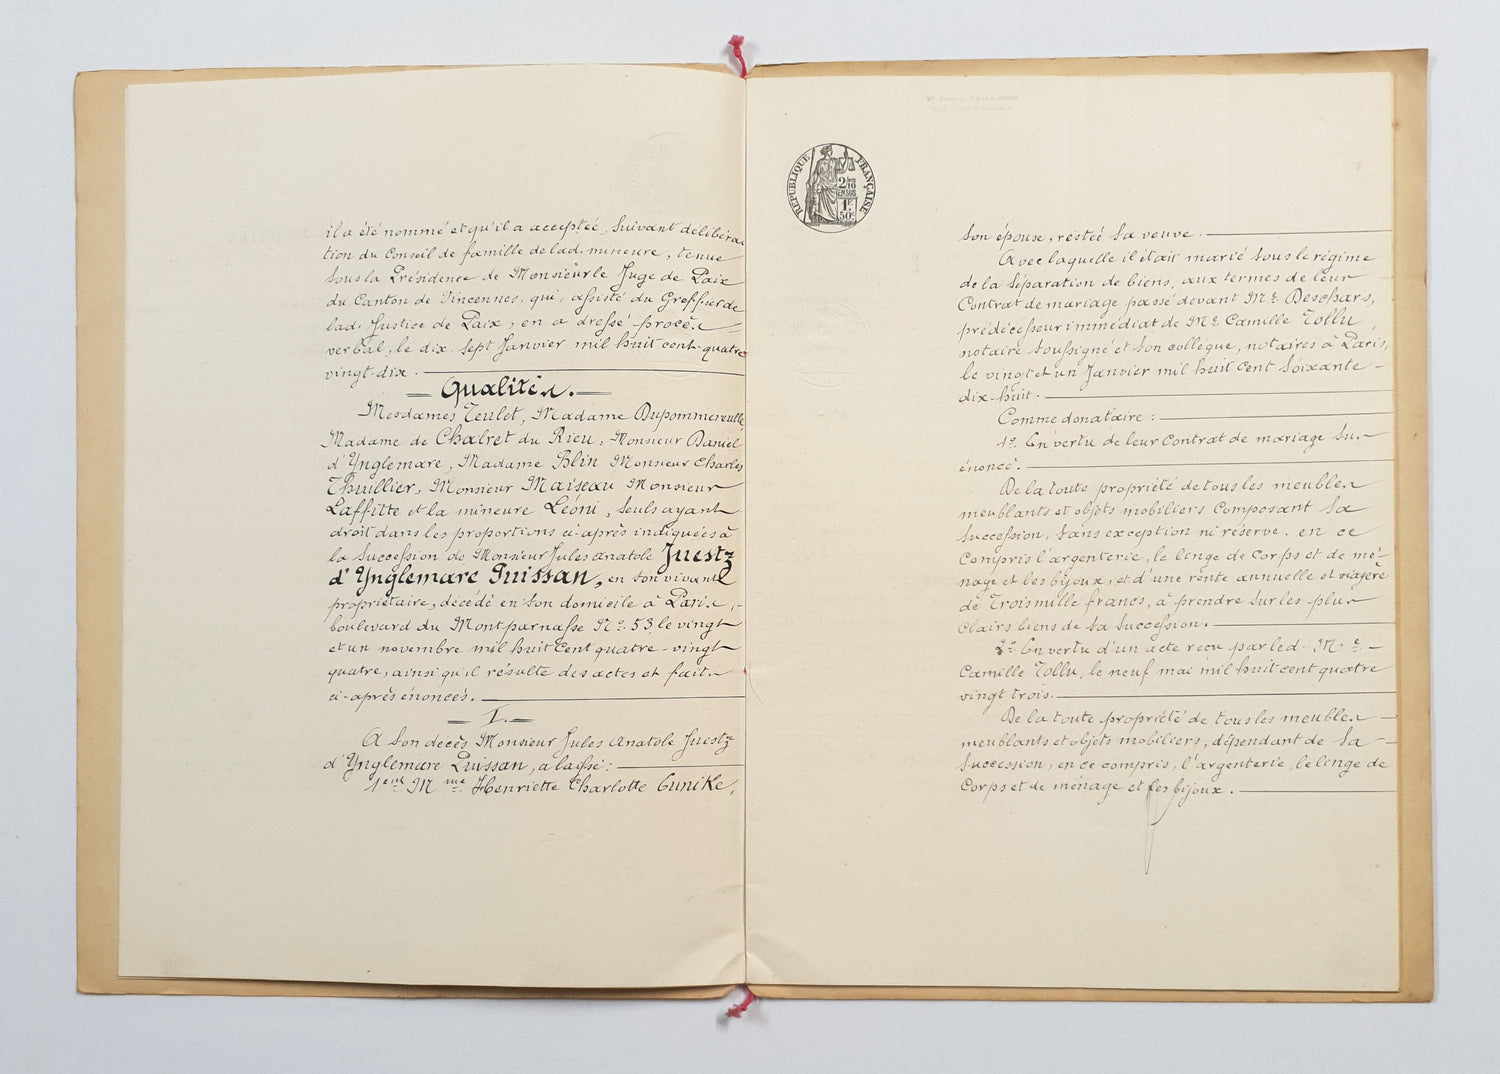 il a été nommé et qu'il a acceptée, suivant délibéra
tion du Conseil de famille de lad. mineure, tenue
sous la Présidence de Monsieur le Juge de Paix
du Canton de Vincennes, qui, assisté du Greffier de
lad. Justice de Paix, en a dressé procès
verbal, le dix-sept Janvier mil huit cent-quatre
vingt-dix.
Qualités.
Mesdames Teulet, Madame Dupommereulle,
Madame de Chalret du Rieu, Monsieur Daniel
d'Ynglemare, Madame Blin Monsieur Charles
Thuillier, Monsieur Maiseau Monsieur
Laffitte et la mineure Léoni, seuls ayant
droit dans les proportions ci-après indiquées à
la Succession de Monsieur Jules Anatole Juestz
d'Ynglemare Puissan, en son vivant
propriétaire, décédé en son domicile à Paris,
boulevard du Montparnasse No. 53, le vingt
et un novembre mil huit Cent quatre-vingt
quatre, ainsi qu'il résulte des actes et faits
ci-après énoncés.
I.
A son décès Monsieur Jules Anatole Juestz
d'Ynglemare Puissan, a laissé:
1ent Mme Henriette Charlotte Cunike,
RÉPUBLIQUE FRANÇAISE
2/10
EN SUS
1F.
50c
son épouse, restée sa veuve.
Avec laquelle il était marié sous le régime
de la Séparation de biens, aux termes de leur
Contrat de mariage passé devant Me. Deschars,
prédécesseur immédiat de Me. Camille Tollu
notaire soussigné et son collègue, notaires à Paris,
le vingt et un Janvier mil huit Cent Soixante
dix-huit.
Comme donataire:
1o. En vertu de leur Contrat de mariage sus
énoncé.
De la toute propriété de tous les meubles
meublants et objets mobiliers Composant Sa
Succession, sans exception ni réserve, en ce
Compris l'argenterie, le linge de Corps et de mé
nage et les bijoux, et d'une rente annuelle et viagère
de Trois mille francs, à prendre sur les plus
Clairs biens de sa succession.
2o En vertu d'un acte reçu par led. Me.
Camille Tollu, le neuf mai mil huit cent quatre
vingt trois.
De la toute propriété de tous les meubles
meublants et objets mobiliers, dépendant de Sa
Succession, en ce compris, l'argenterie, le linge de
Corps et de ménage et les bijoux.